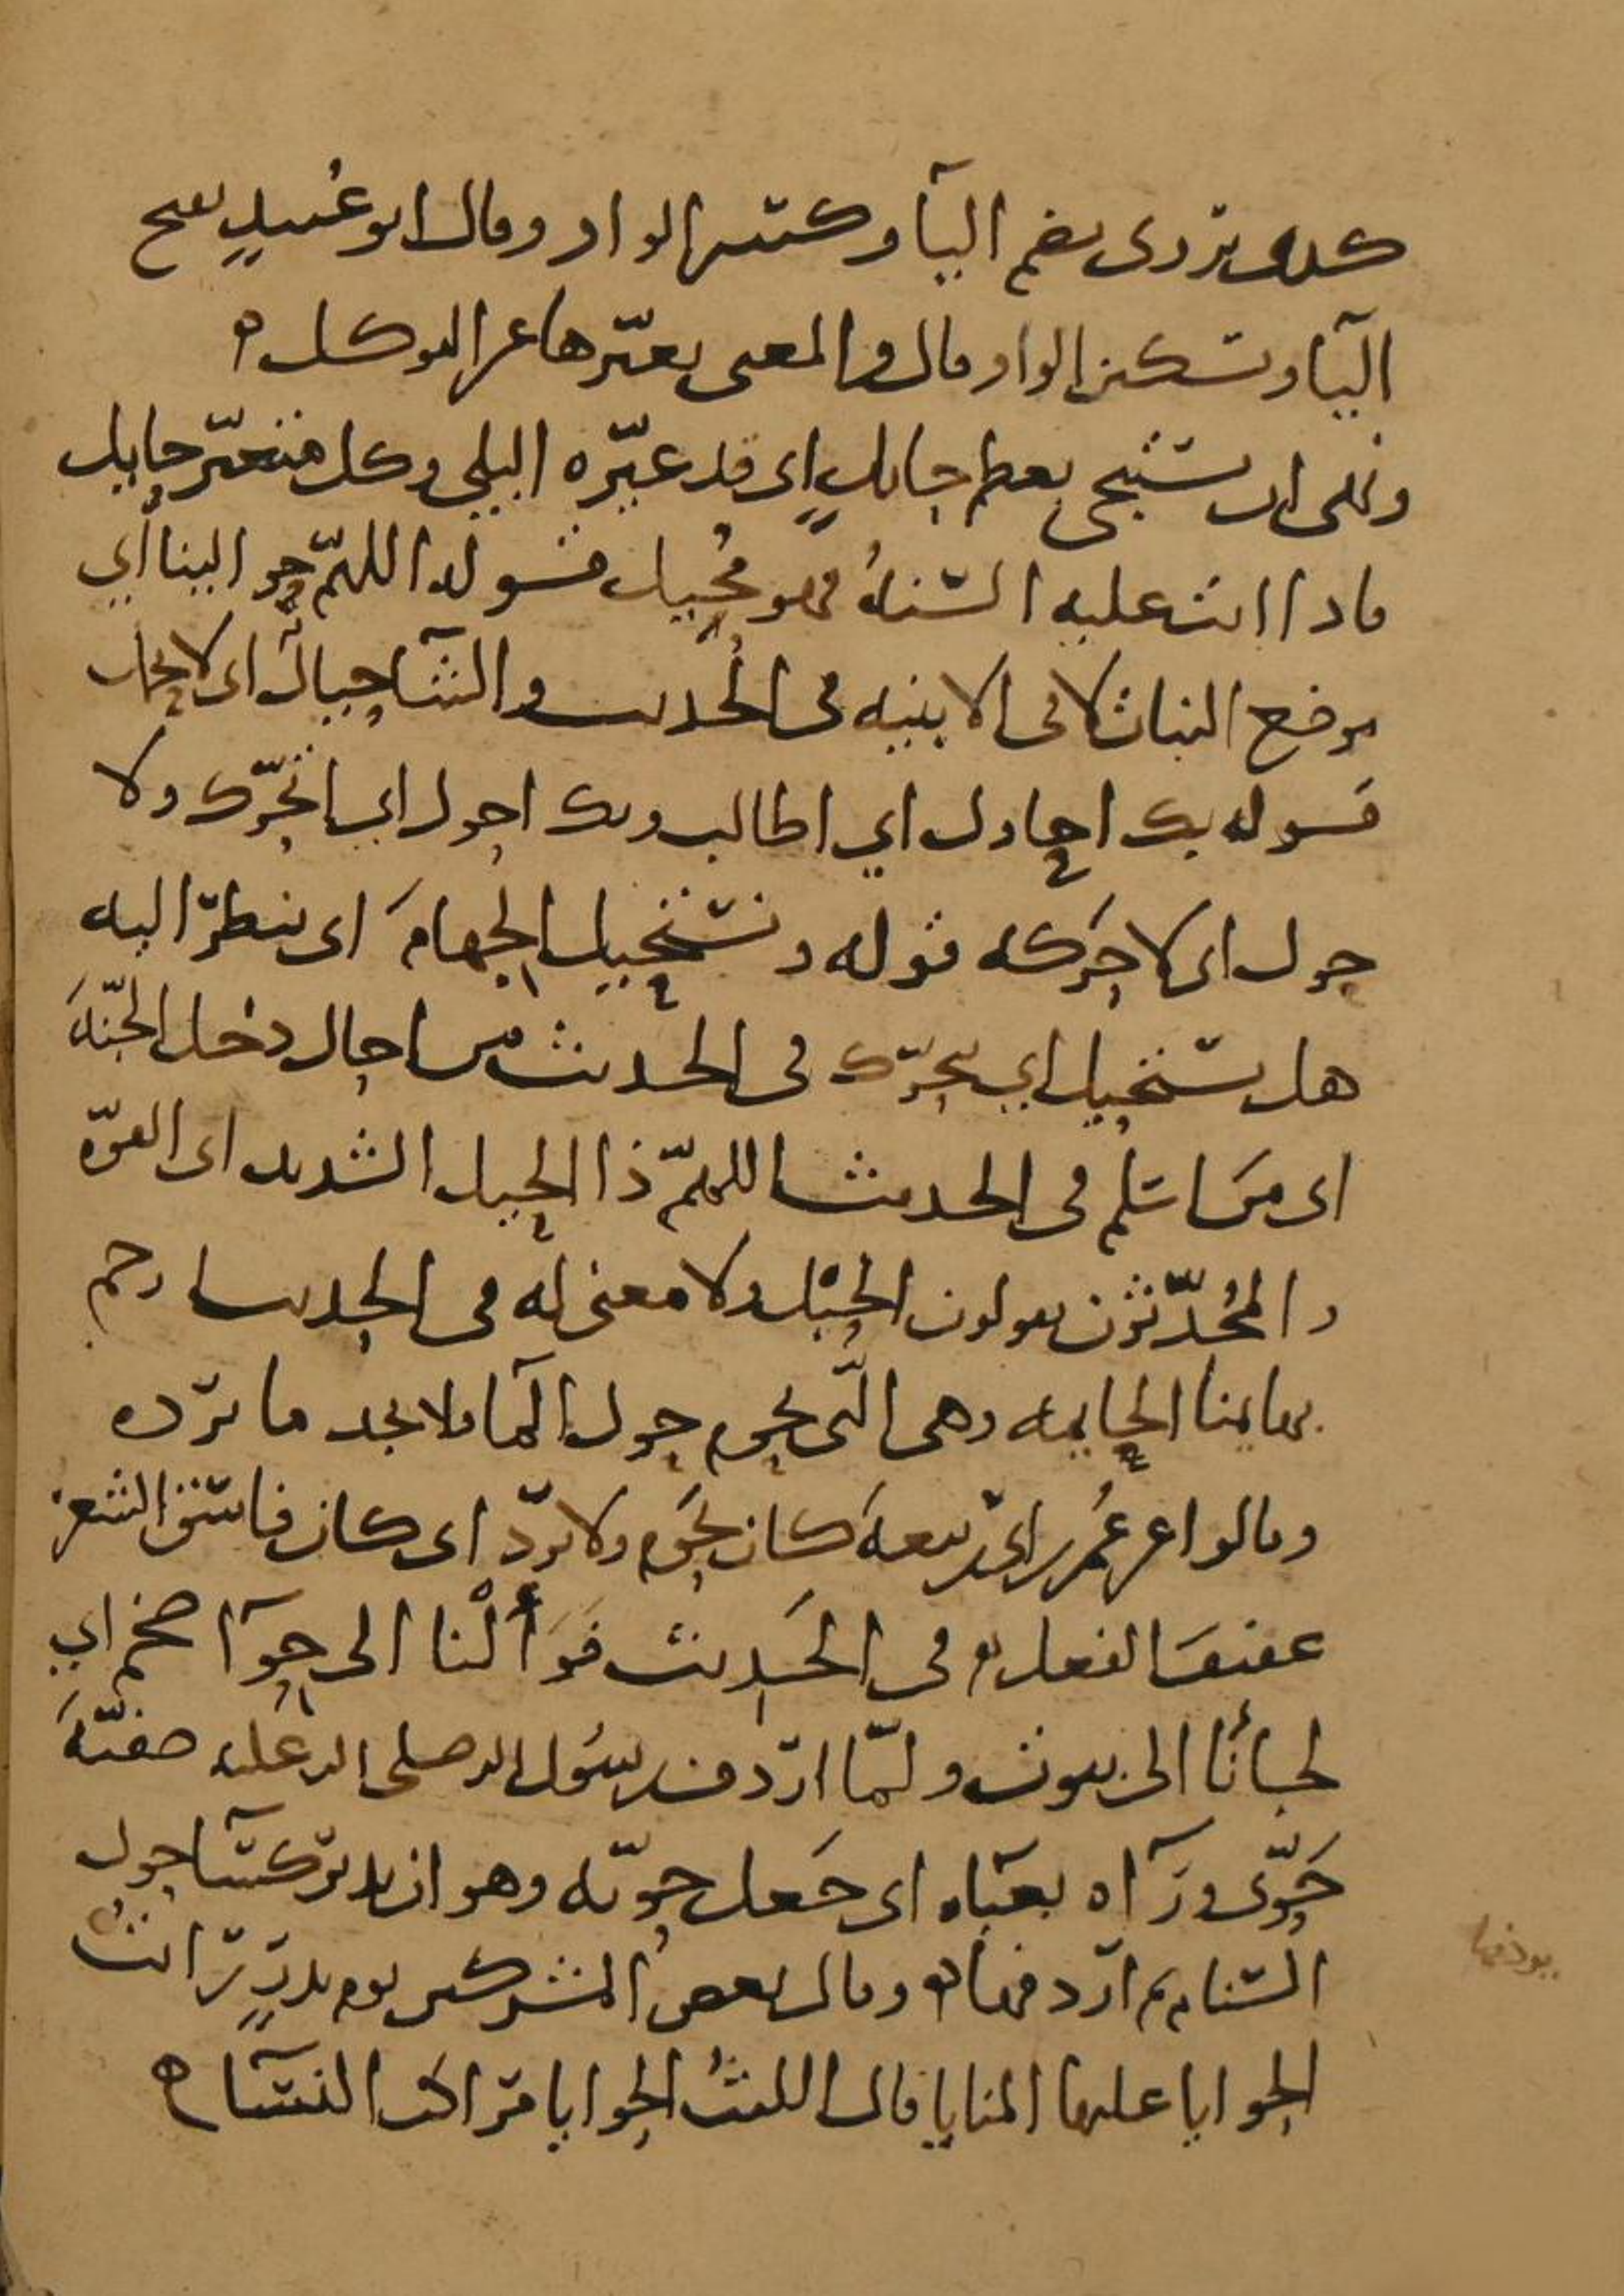 كذلك يروى بضم اليآ وكسر الواو وقال ابو عُبيدٍ بفتح
اليآ وتسكين الواو قال والمعنى يغيّرها عن التوكل ه
ونهى ان يستنجى بعظم حايلٍ اى قد غيّره البلى وكل متغيّر حايل
فاذا اتت عليه السّنةُ فهو مُحِيل قوله اللهمّ حوالينا أي
موضع النبات لا فى الابنيه فى الحديث والشآ حيالٌ اى لا تحمل
قوله بك احاول اي اطالب وبك احول اي اتحرّك ولا
حول اى لا حَركه قوله ونستحيل الجهامَ اى ننظر اليه
هل يستحيل اي يتحرّك فى الحديث من احال دخل الجنّةَ
اى مَن اسلم فى الحديث اللهمّ ذا الحيل الشديد اى القوّه
والمُحدّثون يقولون الحَبْل ولا معنى له فى الحديث ارحم
بهايمنا الحايمه وهى الّتى تحوم حول المآ فلا تجد ما ترده
وقالوا عن عُمر بن ابى ربيعةَ كان يَحُوم ولا يرد اى كان فاسق الشعر
عفيفَ الفعل ه فى الحَديث فَوَألْنا الى حِوَآ ضخم اي
لجأنا الى بيوت ولمّا اردف رسول الله صلى الله عليه صفيّةَ
حَوّى ورَآه بعبآه اى جَعل حويّه وهو ان يدير كسآ حول
السّنام ثم اردفها ه وقال بعض المشركين يوم بدرٍ رايتُ
الحوايا عليها المنايا قال الليثُ الحوايا مراكب النسآ ه